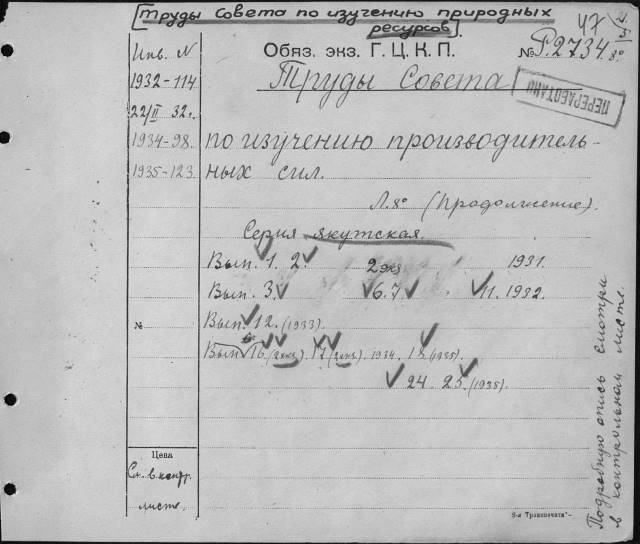 Труды Совета по изучению природных
ресурсов
47
Инв. N
Обяз. экз. Г. Ц. К. П.
№ Р.2734 8°
1932-114
Труды Совета
ПЕРЕРАБОТАНО
22/II 32 г.
1934-98.
по изучению производитель-
1935-123
ных сил.
Л. 8° (Продолжение).
Серия якутская.
Вып. 1. 2. 2 экз 1931.
Вып. 3. 6. 7 11. 1932.
№
Вып. 12. (1933).
Вып 16 (2 экз.) 17 (2 экз.) 1934. 18 (1935)
24 25 (1935)
Цена
См. в контр.
листе.
Подробную опись смотри
в контрольном листе.
8-я Транспечати"–